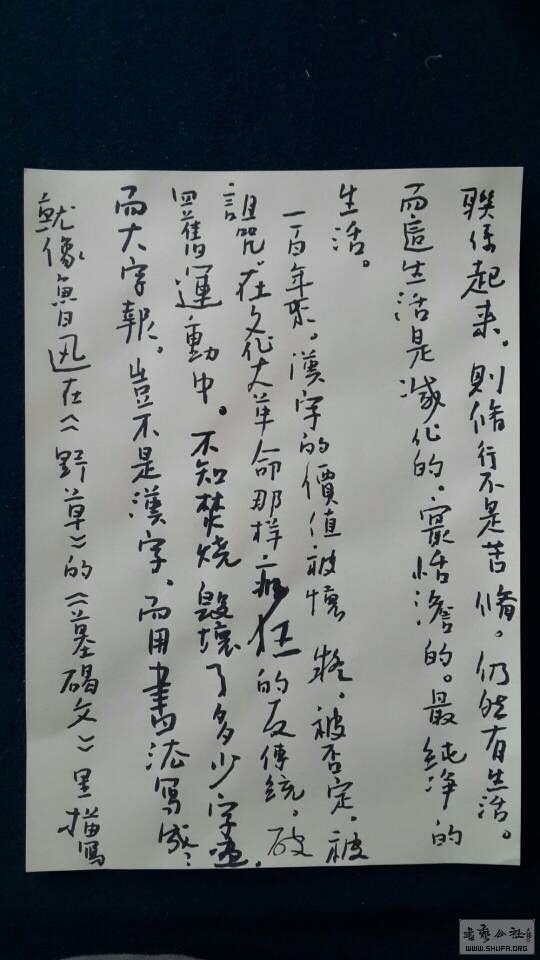 聯係起来。則脩行不是苦脩。仍然有生活。
而這生活是減化的。最恬澹的。最純净的
生活。
一百年來。漢字的價值被懷疑。被否定。被
詛咒在文化大革命那样疯狂的反傳統。破
四舊運動中。不知焚烧毁壞了多少字畫。
而大字報。豈不是漢字。而用書法寫成。
就像魯迅在《野草》的《墓碣文》里描寫
书艺公社
WWW.SHUFA.ORG